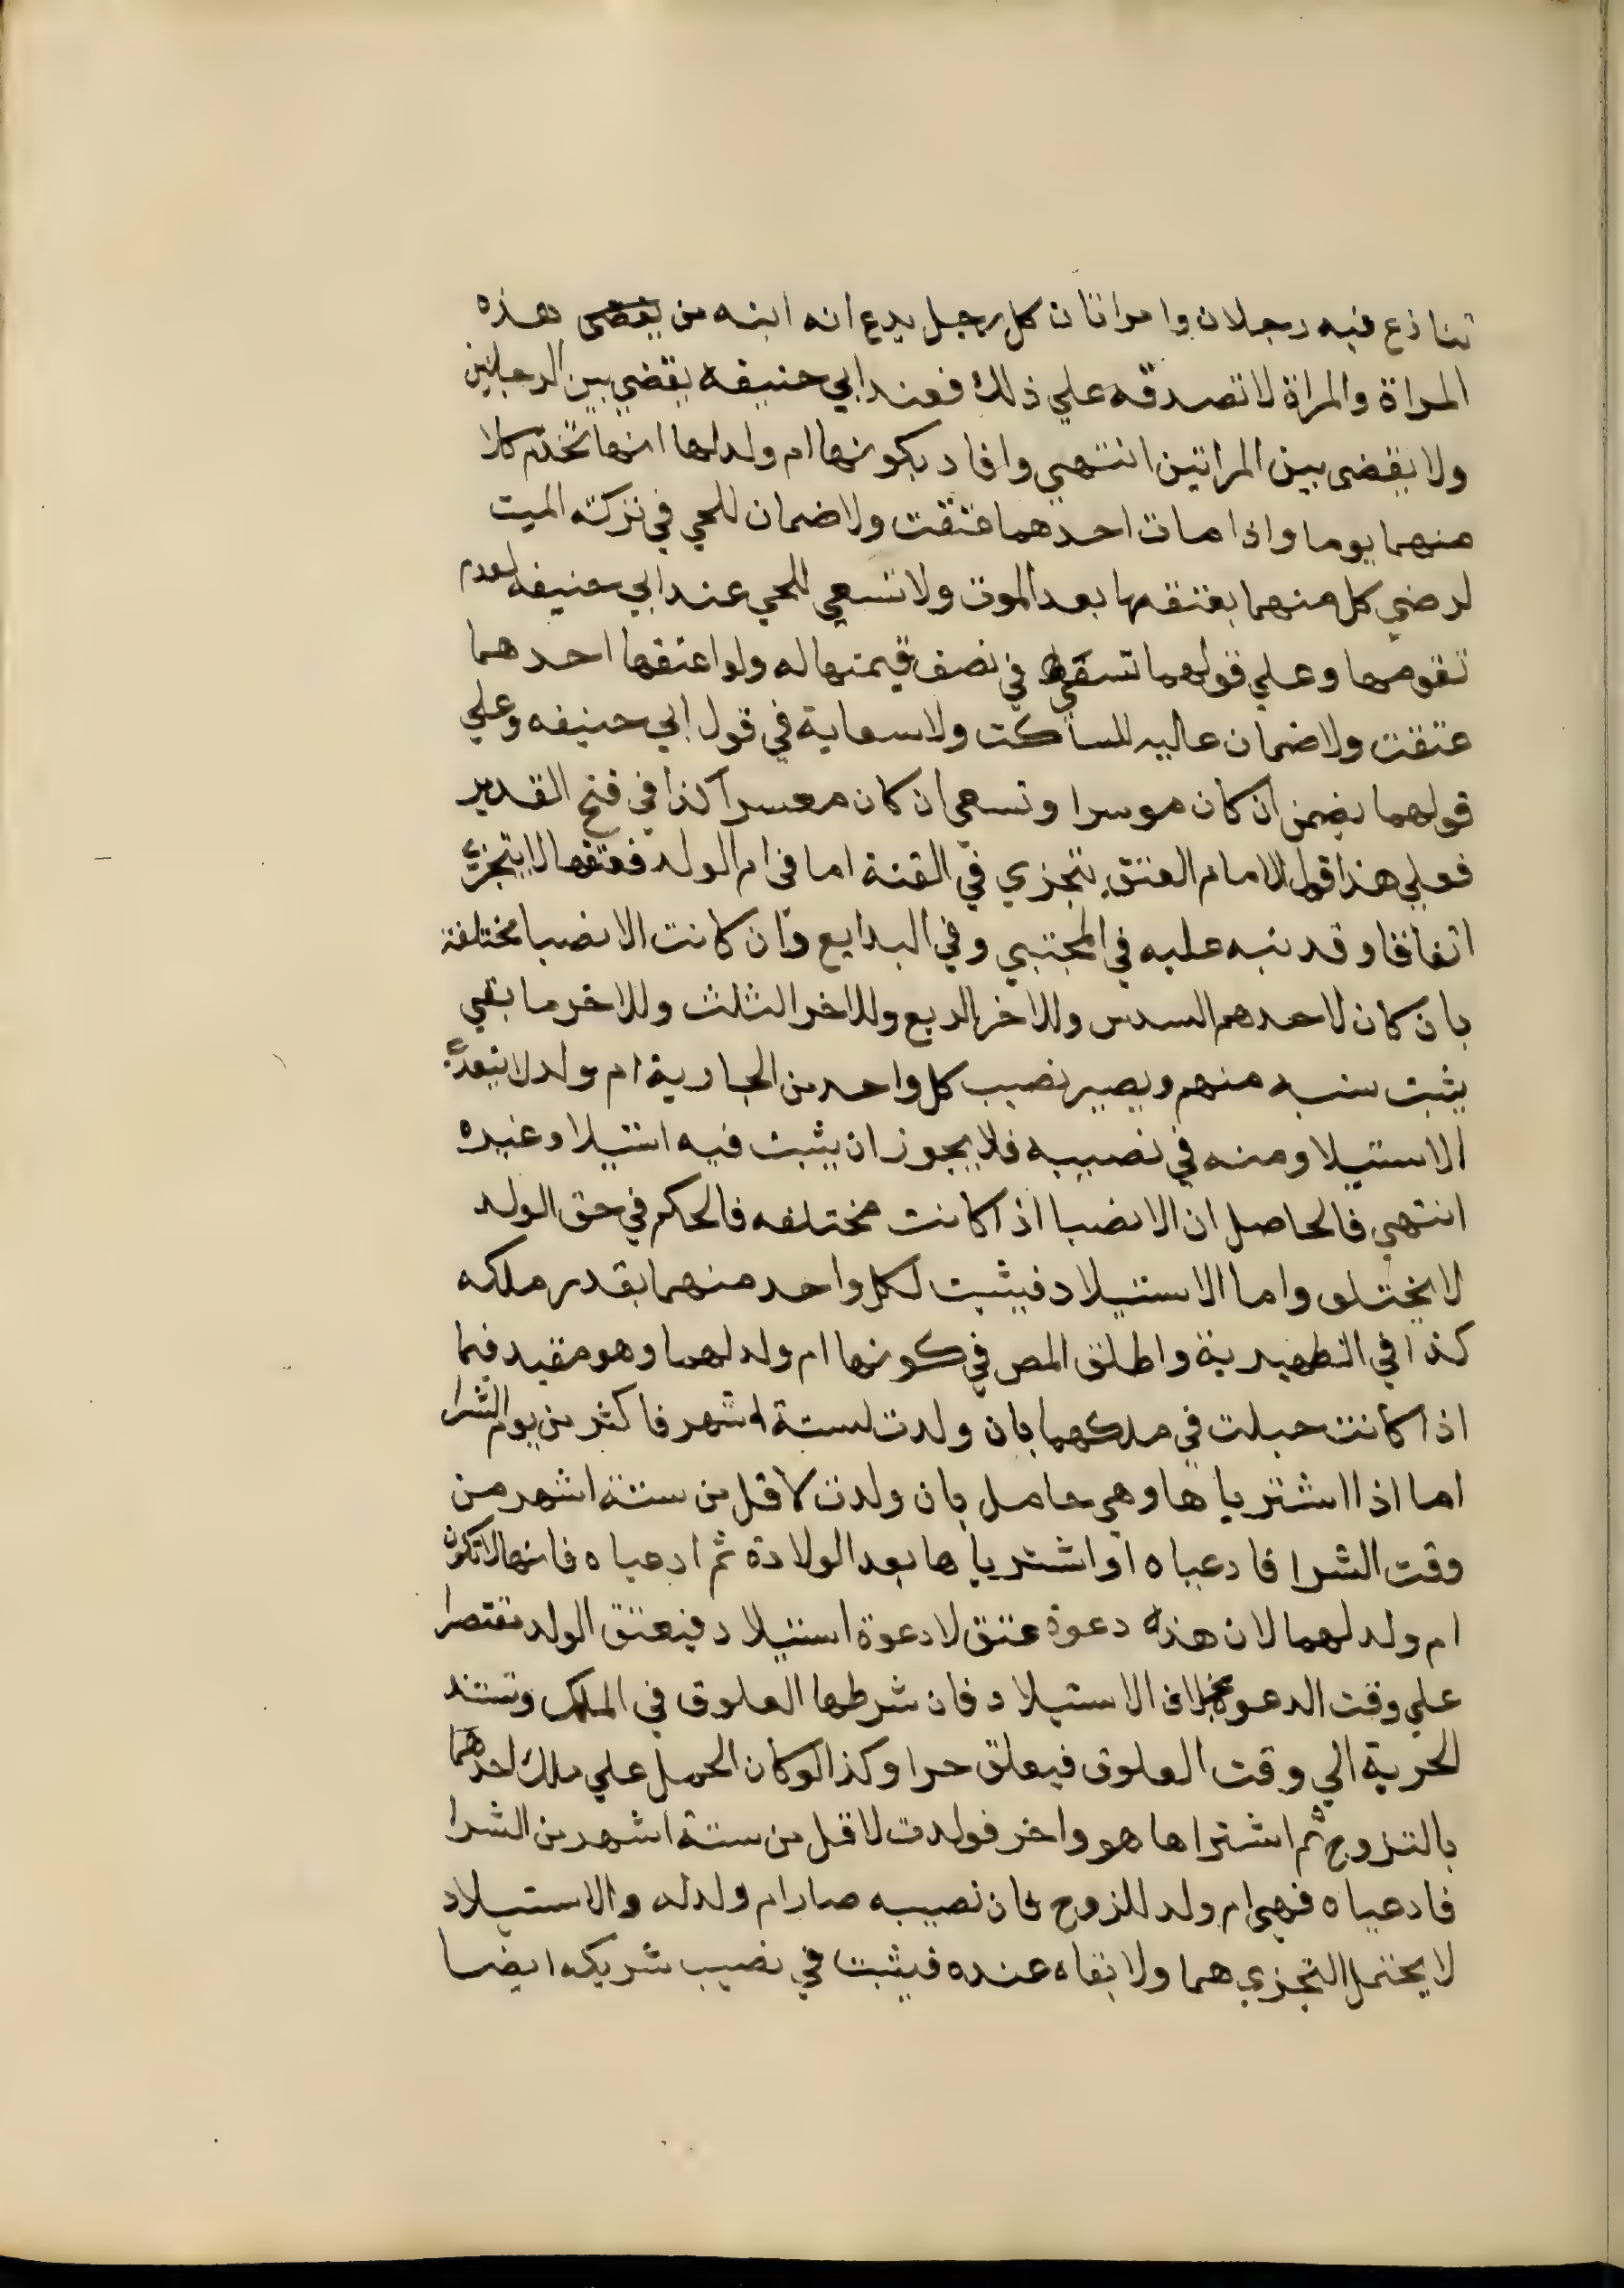 تنازع فيه رجلان وامراتان كل رجل يدع انه ابنه من هذه
المراة والمراة لا تصدقه علي ذلك فعند ابي حنيفه يقضي بين الرجلين
ولا يقضى بين المراتين انتهي وافاد بكونها ام ولد لهما انها تخدم كلا
منهما يوما واذا مات احدهما عتقت ولا ضمان للحي في تركة الميت
لرضي كل منهما بعتقها بعد الموت ولا تسعي للحي عند ابي حنيفه لعدم
تقومها وعلي قولهما تسعي في نصف قيمتها له ولو اعتقها احدهما
عتقت ولا ضمان عاليه للساكت ولا سعاية في قول ابي حنيفه وعلي
قولهما يضمن ان كان موسرا وتسعي ان كان معسرا كذا في فتح القدير
فعلي هذا قول الامام العتق يتجزي في القنة اما في ام الولد فعتقها لا يتجزئ
اتفاقا وقد نبه عليه في المجتبي وفي البدايع وان كانت الانصبا مختلفة
بان كان لاحدهم السدس وللاخر الربع وللاخر الثلث وللاخر ما بقي
يثبت نسبه منهم ويصير نصيب كل واحد من الجارية ام ولد لا يتعدى
الاستيلاد منه في نصيبه فلا يجوز ان يثبت فيه استيلاد غيره
انتهي فالحاصل ان الانصبا اذا كانت مختلفه فالحكم في حق الولد
لا يختلف واما الاستيلاد فيثبت لكل واحد منهما بقدر ملكه
كذا في الظهيرية واطلق المص في كونها ام ولد لهما وهو مقيد فيما
اذا كانت حبلت في ملكهما بان ولدت لستة اشهر فاكثر من يوم الشرا
اما اذا اشترياها وهي حامل بان ولدت لاقل من ستة اشهر من
وقت الشرا فادعياه او اشترياها بعد الولادة ثم ادعياه فانها لا تكون
ام ولد لهما لان هذه دعوة عتق لا دعوة استيلاد فيعتق الولد مقتصرا
علي وقت الدعوة بخلاف الاستيلاد فان شرطها العلوق في الملك وتستند
الحرية الي وقت العلوق فيعلق حرا وكذا لو كان الحمل علي ملك احدهما
بالتزوج ثم اشتراها هو واخر فولدت لاقل من ستة اشهر من الشرا
فادعياه فهي ام ولد للزوج فان نصيبه صار ام ولد له والاستيلاد
لا يحتمل التجزي هما ولا بقاه عنده فيثبت في نصيب شريكه ايضا